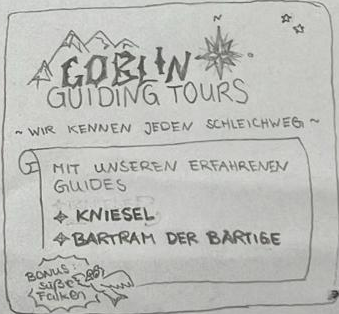 N
GOBLIN
GUIDING TOURS
~ WIR KENNEN JEDEN SCHLEICHWEG ~
MIT UNSEREN ERFAHRENEN
GUIDES
KNIESEL
BARTRAM DER BÄRTIGE
BONUS:
süße
Falken